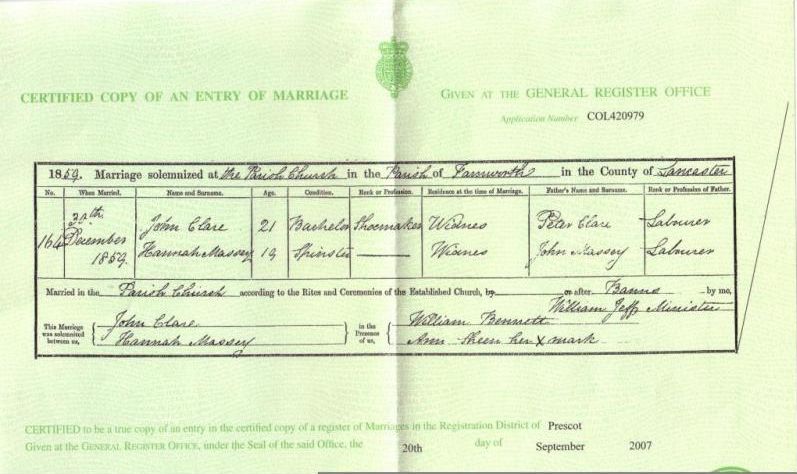 CERTIFIED COPY OF AN ENTRY OF MARRIAGE
GIVEN AT THE GENERAL REGISTER OFFICE
Application Number COL420979
1859. Marriage solemnized at the Parish Church in the Parish of Farnworth in the County of Lancaster
No. When Married. Name and Surname. Age. Condition. Rank or Profession. Residence at the time of Marriage. Father's Name and Surname. Rank or Profession of Father.
164 December 1859.
John Clare 21 Bachelor Shoemaker Widnes Peter Clare Labourer
Hannah Massey 19 Spinster Widnes John Massey Labourer
Married in the Parish Church according to the Rites and Ceremonies of the Established Church, by or after Banns by me,
William Jeff Minister
This Marriage was solemnized between us, John Clare Hannah Massey
in the Presence of us, William Bennett Ann Skeen her X mark
CERTIFIED to be a true copy of an entry in the certified copy of a register of Marriages in the Registration District of Prescot
Given at the GENERAL REGISTER OFFICE, under the Seal of the said Office, the 20th day of September 2007